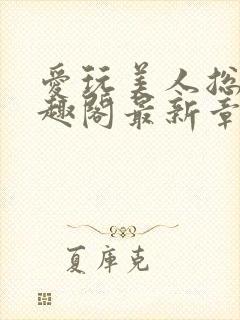 爱玩美人总
趣阁最新章
夏库克